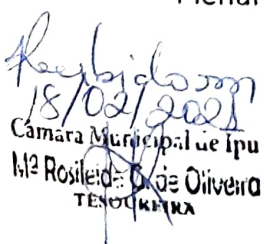 Recebido em
18/02/2021
Câmara Municipal de Ipu
Mª Rosileide de Oliveira
TESOUREIRA